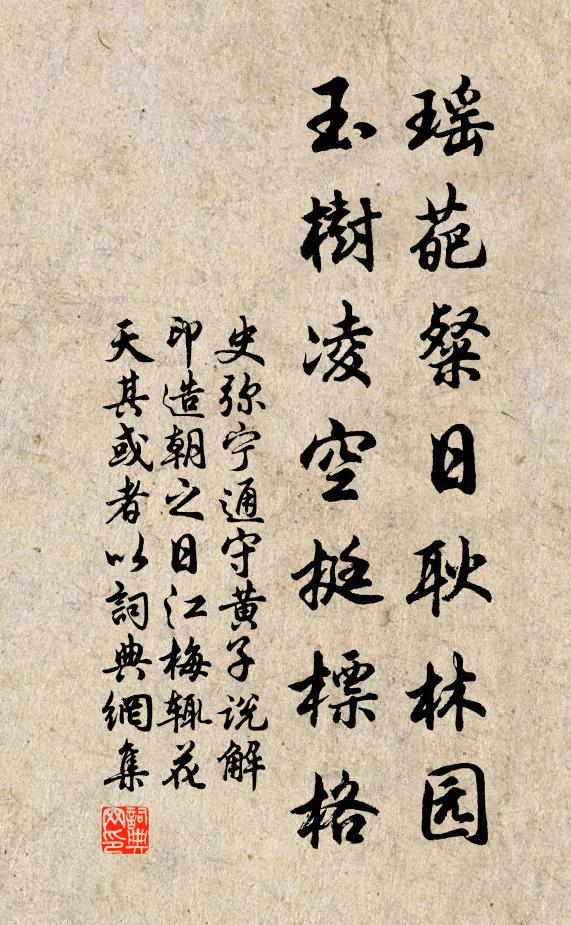 瑶葩粲日耿林园
玉樹凌空挺標格
史弥宁通守黄子说解
印造朝之日江梅辄花
天其或者以詞典網集
詞典网印